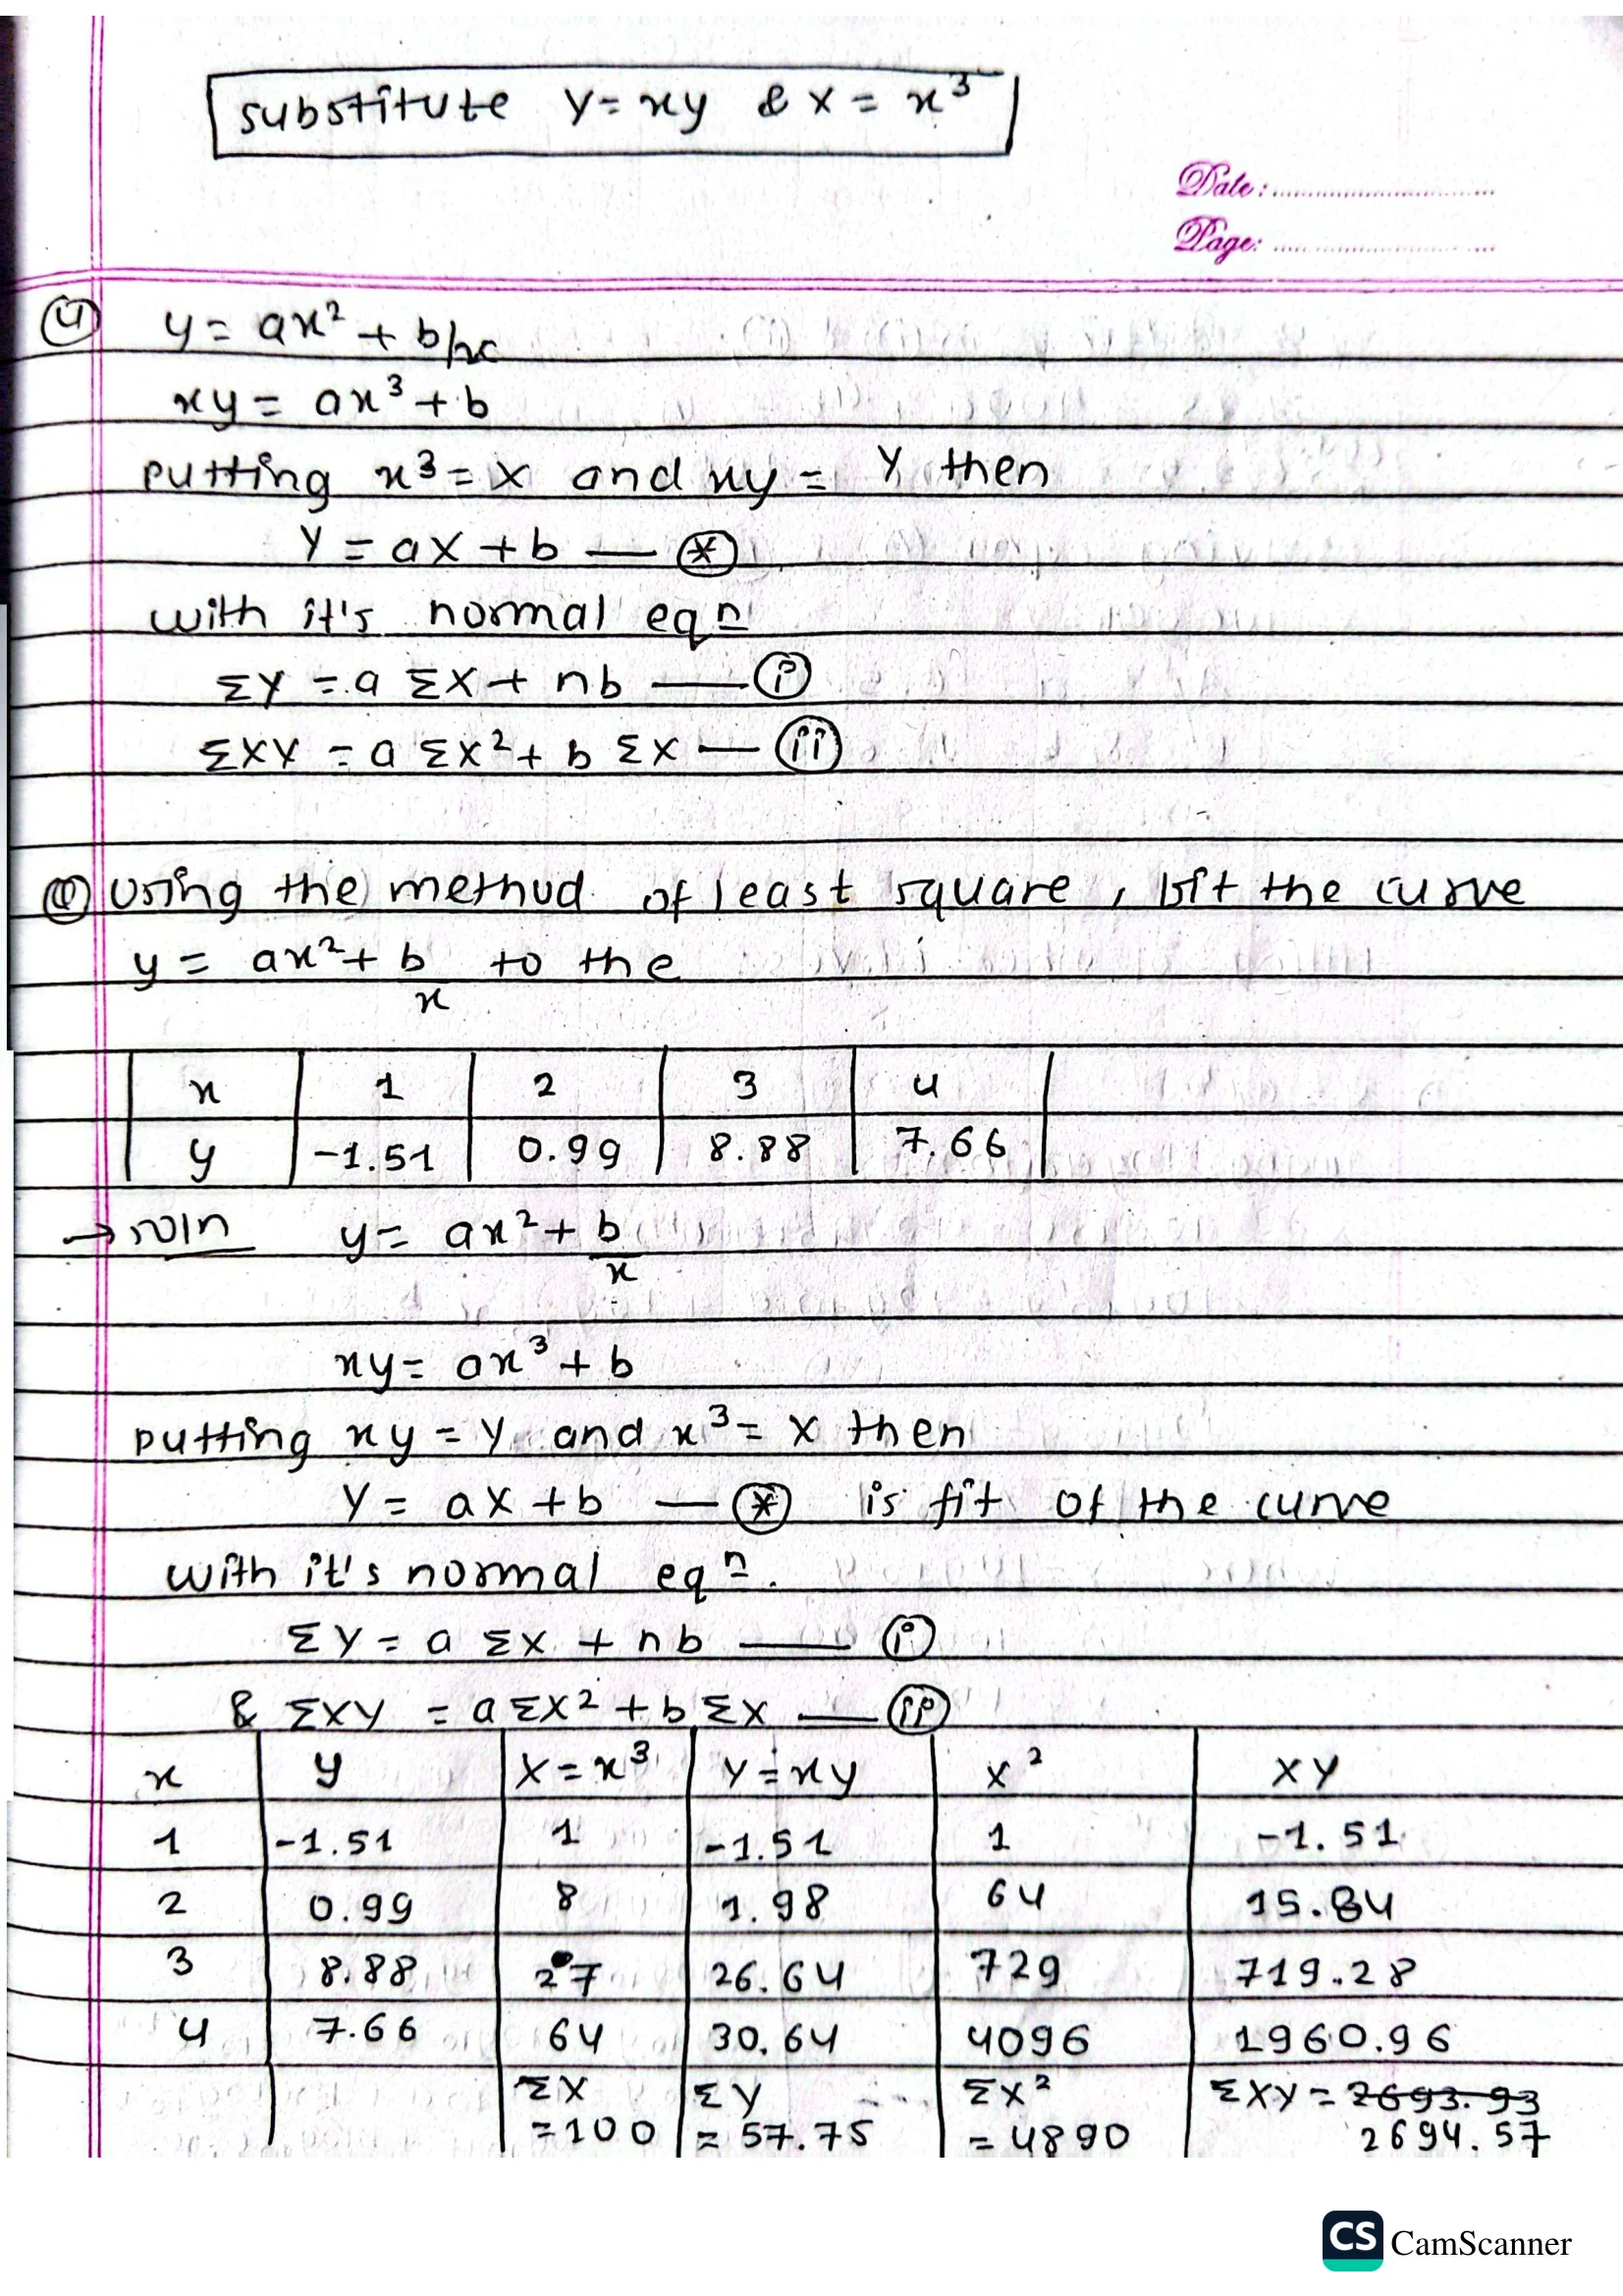 substitute Y = xy & X = x³
Date: ..............................
Page: ..............................
④ y = ax² + b/x
xy = ax³ + b
putting x³ = X and xy = Y then
Y = aX + b — ⊛
with it's normal eqn
ΣY = a ΣX + nb — ⓘ
ΣXY = a ΣX² + b ΣX — ⓘⓘ
Using the method of least square, bit the curve
y = ax² + b/x to the
x 1 2 3 4
y -1.51 0.99 8.88 7.66
→ soln y = ax² + b/x
xy = ax³ + b
putting xy = Y and x³ = X then
Y = aX + b — ⊛ is fit of the curve
with it's normal eqn.
ΣY = a ΣX + nb — ⓘ
& ΣXY = a ΣX² + b ΣX — ⓘⓘ
x y X = x³ Y = xy X² XY
1 -1.51 1 -1.51 1 -1.51
2 0.99 8 1.98 64 15.84
3 8.88 27 26.64 729 719.28
4 7.66 64 30.64 4096 1960.96
ΣX ΣY ΣX² ΣXY = 2693.93
= 100 = 57.75 = 4890 2694.57
CS CamScanner